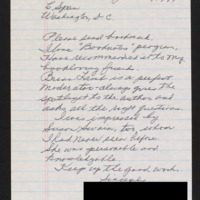 C Span
Washington, D C
Please send bookmark
I love "Booknotes" program,
Have recommended it to my
booklovers friends
Brian Lamb is a perfect
Moderator - always gives the
spotlight to the author and
asks all the right questions.
I was impressed by
Susan Swain, too, whom
I had never seen before
She was personable and
knowledgable.
Keep up the good work.
Sincerely